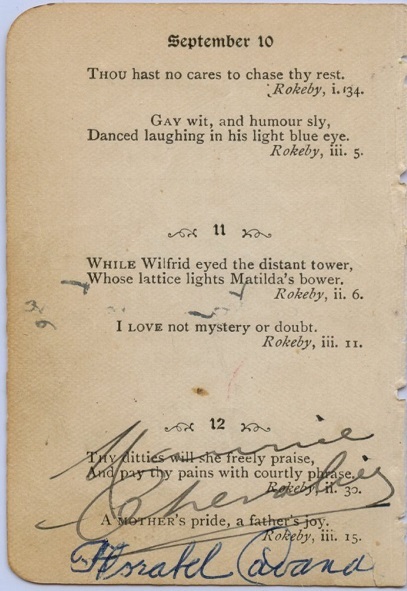 September 10
THOU hast no cares to chase thy rest.
Rokeby, i. 34.
GAY wit, and humour sly,
Danced laughing in his light blue eye.
Rokeby, iii. 5.
11
WHILE Wilfrid eyed the distant tower,
Whose lattice lights Matilda's bower.
Rokeby, ii. 6.
I LOVE not mystery or doubt.
Rokeby, iii. 11.
12
THY ditties will she freely praise,
And pay thy pains with courtly phrase.
Rokeby, ii. 30.
Chevalier
A MOTHER'S pride, a father's joy.
Rokeby, iii. 15.